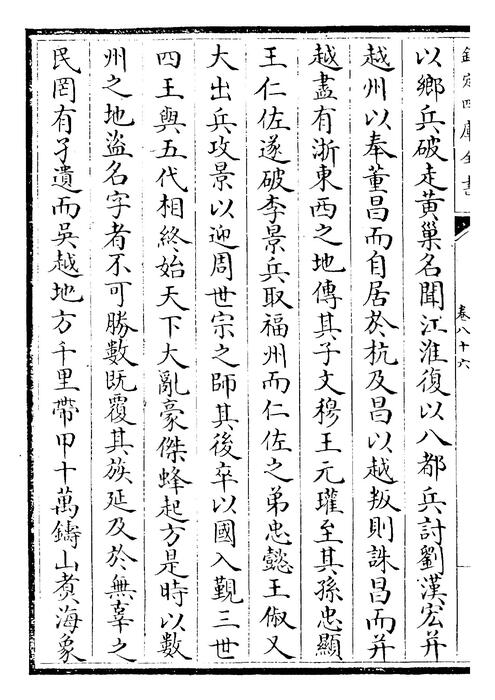 欽定四庫全書
卷八十六
以鄉兵破走黃巢名聞江淮復以八都兵討劉漢宏并
越州以奉董昌而自居於杭及昌以越叛則誅昌而并
越盡有浙東西之地傳其子文穆王元瓘至其孫忠顯
王仁佐遂破李景兵取福州而仁佐之弟忠懿王俶又
大出兵攻景以迎周世宗之師其後卒以國入覲三世
四王與五代相終始天下大亂豪傑蜂起方是時以數
州之地盜名字者不可勝數既覆其族延及於無辜之
民罔有孑遺而吳越地方千里帶甲十萬鑄山煑海象